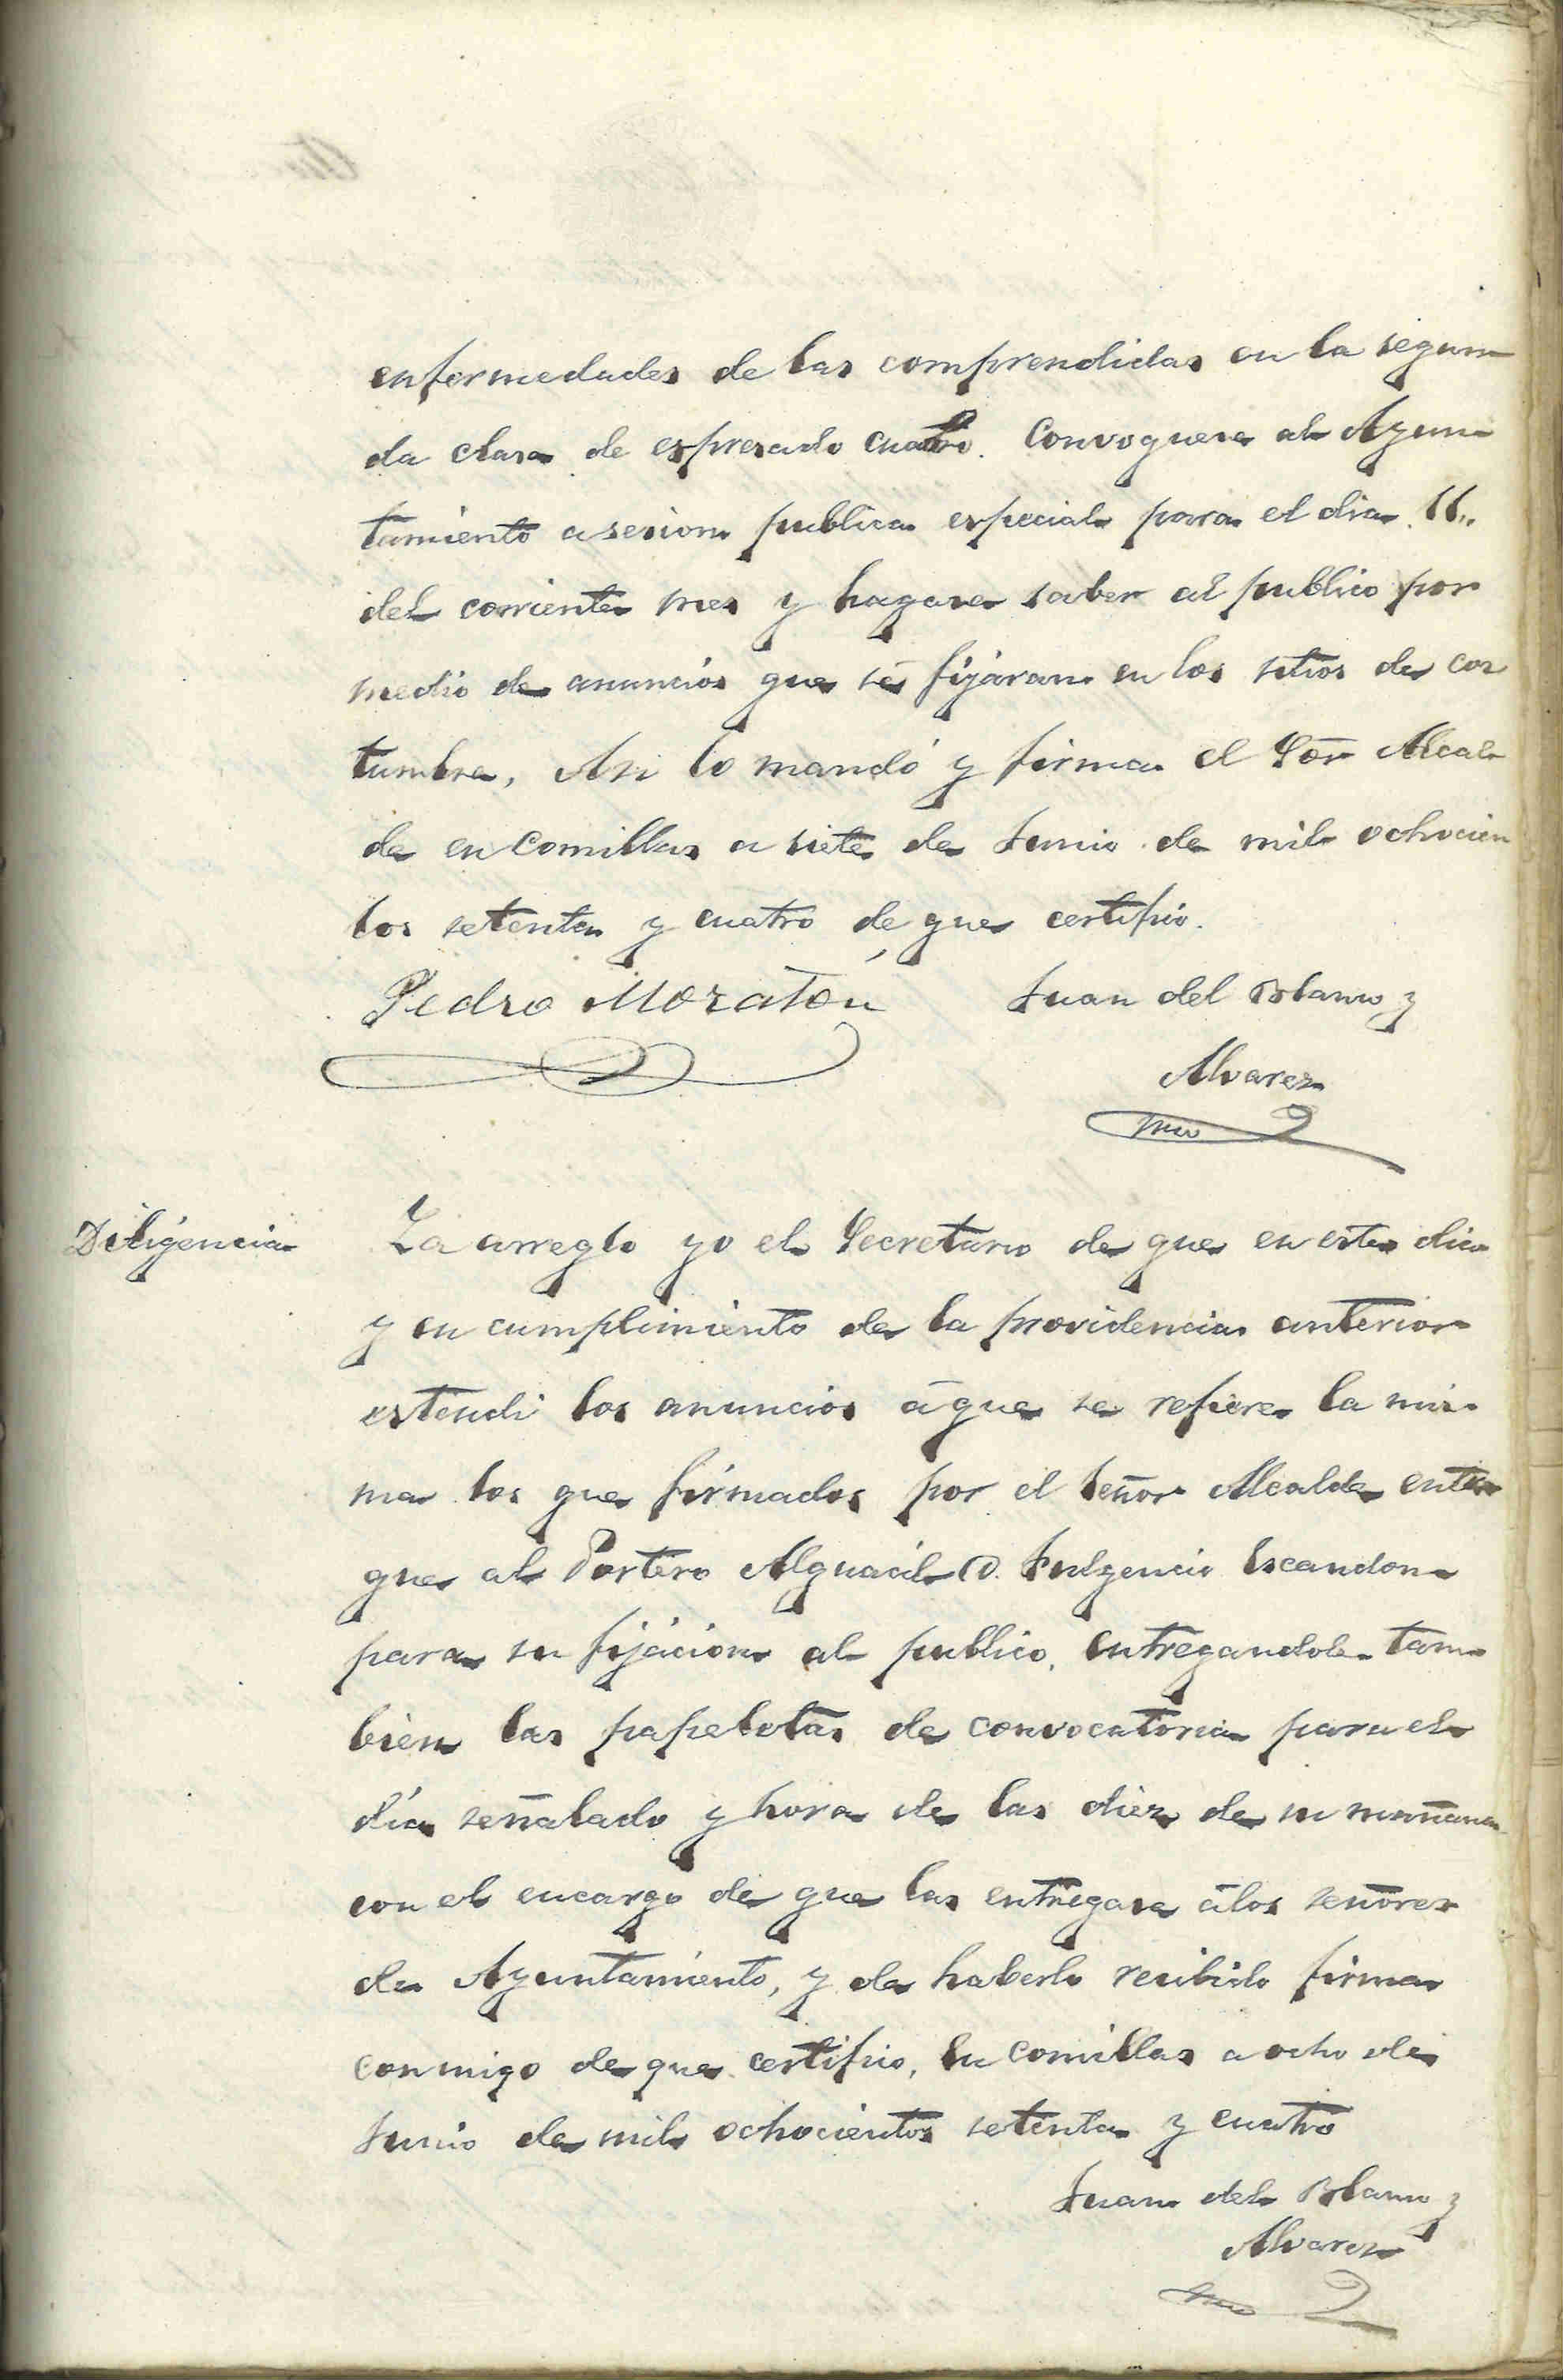 enfermedades de las comprendidas en la segun
da clase de espresado cuadro. Convoquese al Ayun
tamiento a sesion publica especial para el dia 11,,
del corriente mes y hagase saber al publico por
medio de anuncios que se fijaran en los sitios de cos
tumbre, Asi lo mandó y firma el Sor Alcal
de en Comillas a siete de Junio de mil ochocien
tos setenta y cuatro de que certifico.
Pedro Moratón Juan del Blanco y
Alvarez
Srio
Diligencia
La arreglo yo el Secretario de que en este dia
y en cumplimiento de la providencia anterior
estendi los anuncios á que se refiere la mis
ma los que firmados por el Señor Alcalde entre
gue al Portero Alguacil D. Fulgencio Escandon
para su fijacion al publico, entregandole tam
bien las papeletas de convocatoria para el
día señalado y hora de las diez de su mañana
con el encargo de que las entregase á los señores
de Ayuntamiento, y de haberlo recibido firma
conmigo de que certifico, En Comillas a ocho de
Junio de mil ochocientos setenta y cuatro
Juan del Blanco y
Alvarez
Srio